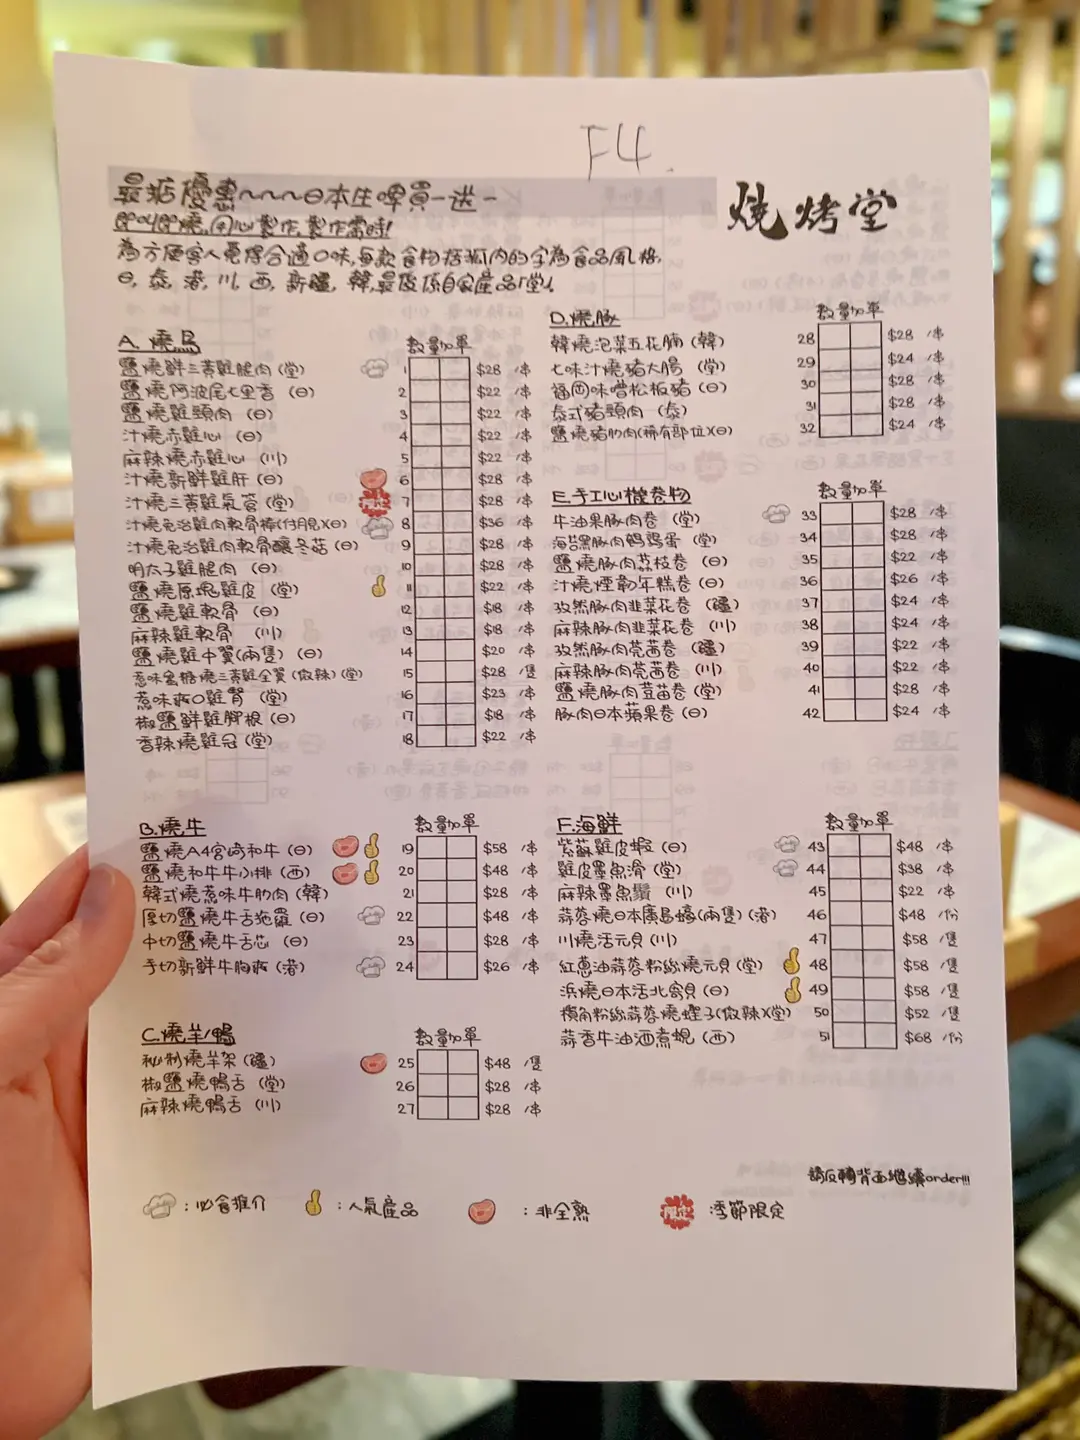 F4.
最抵優惠~~~日本生啤買一送一
燒烤堂
即叫即燒,用心製作,製作需時!
為方便客人覓得合適口味,每款食物括弧內的字為食品風格,
日, 泰, 港, 川, 西, 新疆, 韓,最後係自家產品「堂」
A. 燒鳥 數量加單
鹽燒鮮三黃雞腿肉 (堂) 1 $28 /串
鹽燒阿波尾七里香 (日) 2 $22 /串
鹽燒雞頸肉 (日) 3 $22 /串
汁燒赤雞心 (日) 4 $22 /串
麻辣燒赤雞心 (川) 5 $22 /串
汁燒新鮮雞肝 (日) 6 $28 /串
汁燒三黃雞氣管 (堂) 限定 7 $28 /串
汁燒免治雞肉軟骨棒(付月見)(日) 8 $36 /串
汁燒免治雞肉軟骨釀冬菇 (日) 9 $28 /串
明太子雞腿肉 (日) 10 $28 /串
鹽燒原塊雞皮 (堂) 11 $22 /串
鹽燒雞軟骨 (日) 12 $18 /串
麻辣雞軟骨 (川) 13 $18 /串
鹽燒雞中翼(兩隻) (日) 14 $20 /串
惹味蜜糖燒三黃雞全翼(微辣) (堂) 15 $28 /隻
惹味爽口雞腎 (堂) 16 $23 /串
椒鹽鮮雞腳根 (日) 17 $18 /串
香辣燒雞冠 (堂) 18 $22 /串
B.燒牛 數量加單
鹽燒A4宮崎和牛 (日) 19 $58 /串
鹽燒和牛牛小排 (西) 20 $48 /串
韓式燒惹味牛肋肉 (韓) 21 $28 /串
厚切鹽燒牛舌拖羅 (日) 22 $48 /串
中切鹽燒牛舌芯 (日) 23 $28 /串
手切新鮮牛胸爽 (港) 24 $26 /串
C.燒羊/鴨 數量加單
秘制燒羊架 (疆) 25 $48 /隻
椒鹽燒鴨舌 (堂) 26 $28 /串
麻辣燒鴨舌 (川) 27 $28 /串
D.燒豚 數量加單
韓燒泡菜五花腩 (韓) 28 $28 /串
七味汁燒豬大腸 (堂) 29 $24 /串
福岡味噌松板豬 (日) 30 $28 /串
泰式豬頸肉 (泰) 31 $28 /串
鹽燒豬肋肉(稀有部位)(日) 32 $24 /串
E.手工心機卷物 數量加單
牛油果豚肉卷 (堂) 33 $28 /串
海苔黑豚肉鵪鶉蛋 (堂) 34 $28 /串
鹽燒豚肉荔枝卷 (日) 35 $22 /串
汁燒煙韌年糕卷 (日) 36 $26 /串
孜然豚肉韭菜花卷 (疆) 37 $24 /串
麻辣豚肉韭菜花卷 (川) 38 $24 /串
孜然豚肉莞茜卷 (疆) 39 $22 /串
麻辣豚肉莞茜卷 (川) 40 $22 /串
鹽燒豚肉荳苗卷 (堂) 41 $28 /串
豚肉日本蘋果卷 (日) 42 $24 /串
F.海鮮 數量加單
紫蘇雞皮蝦 (日) 43 $48 /串
雞皮墨魚滑 (堂) 44 $38 /串
麻辣墨魚鬚 (川) 45 $22 /串
蒜蓉燒日本廣島蠔(兩隻) (港) 46 $48 /份
川燒活元貝 (川) 47 $58 /隻
紅蔥油蒜蓉粉絲燒元貝 (堂) 48 $58 /隻
浜燒日本活北寄貝 (日) 49 $58 /隻
欖角粉絲蒜蓉燒蟶子(微辣)(堂) 50 $52 /隻
蒜香牛油酒煮蜆 (西) 51 $68 /份
請反轉背面繼續order!!!
: 必食推介 : 人氣產品 : 非全熟 限定 :季節限定